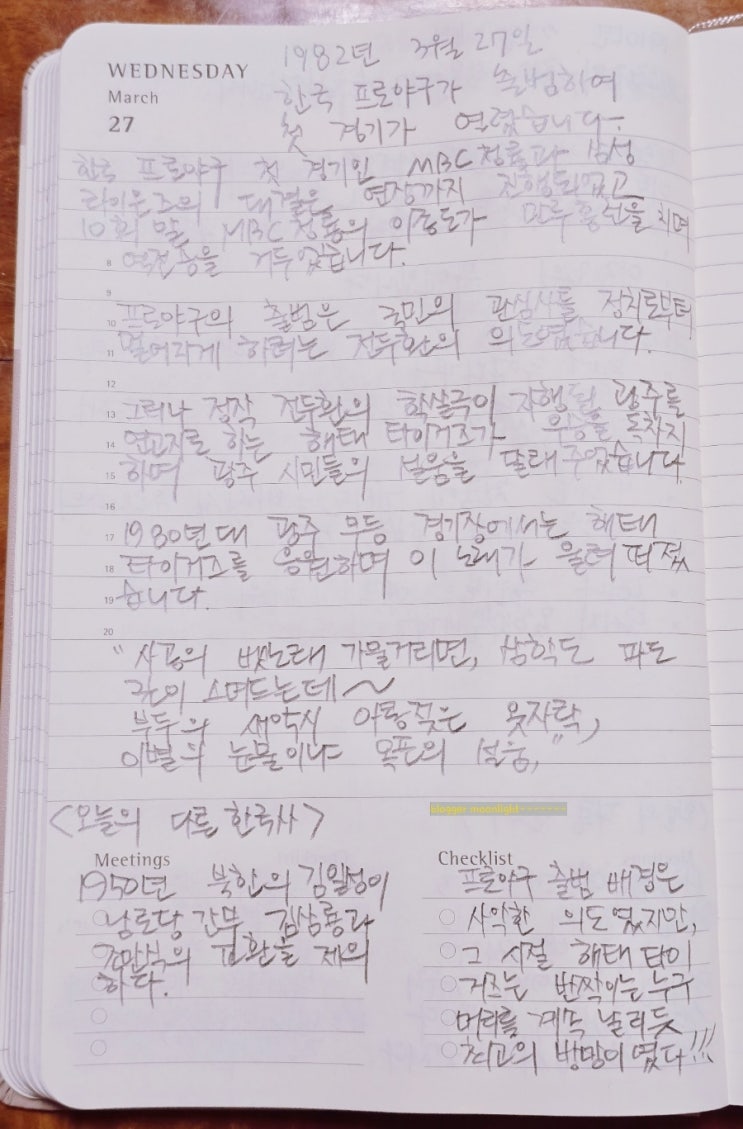 WEDNESDAY
March
27
1982년 3월 27일
한국 프로야구가 출범하여
첫 경기가 열렸습니다.
한국 프로야구 첫 경기인 MBC청룡과 삼성
라이온즈의 대결은 연장까지 진행되었고
10회 말, MBC청룡의 이종도가 만루홈런을 치며
8 역전승을 거두었습니다.
9
10 프로야구의 출범은 국민의 관심사를 정치로부터
11 멀어지게 하려는 전두환의 의도였습니다.
12
13 그러나 정작 전두환의 학살극이 자행된 광주를
14 연고지로 하는 해태 타이거즈가 우승을 독차지
15 하며 광주 시민들의 설움을 달래주었습니다
16
17 1980년대 광주 무등 경기장에서는 해태
18 타이거즈를 응원하며 이 노래가 울려 퍼졌
19 습니다.
20
"사공의 뱃노래 가물거리면, 삼학도 파도
깊이 스며드는데~
부두의 새악시 아롱젖은 옷자락,
이별의 눈물이냐 목포의 설움,"
<오늘의 다른 한국사>
blogger moonlight
Meetings
1950년 북한의 김일성이
남로당 간부 김삼룡과
조만식의 교환을 제의
하다.
Checklist
프로야구 출범 배경은
사악한 의도였지만,
그 시절 해태 타이
거즈는 번쩍이는 누구
머리를 계속 날리듯
최고의 방망이였다!!!